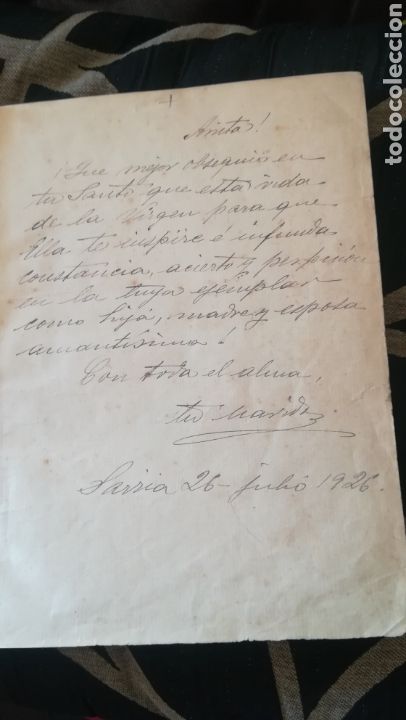 Anita!
¡Que mejor obsequio en
tu Santo que esta vida
de la Virgen para que
Ella te inspire é infunda
constancia, acierto y perfección
en la tuya ejemplar
como hija, madre y esposa
amantísima!
Con toda el alma,
tu Marido
Sarria 26 - julio 1926.
todocoleccion